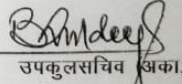 उपकुलसचिव (अका.